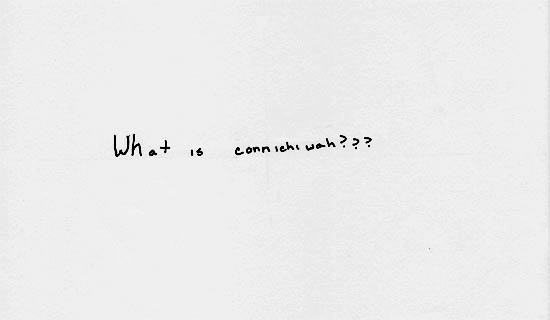 What is connichiwah???